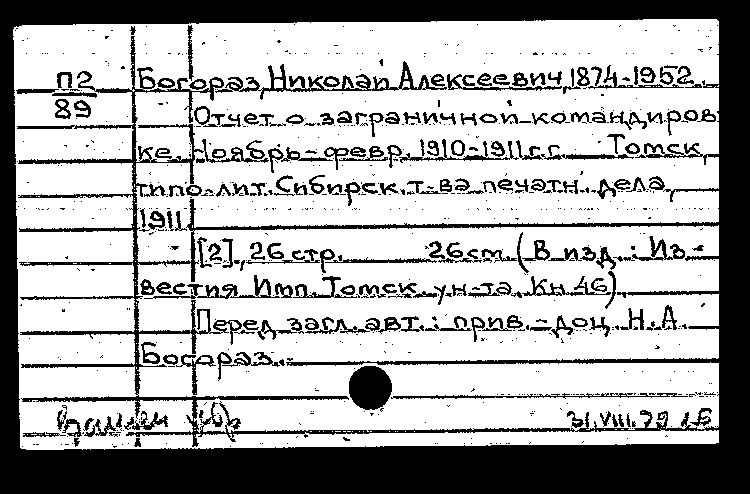 П2 Богораз, Николай Алексеевич, 1874-1952.
89 Отчет о заграничной командиров
ке. Ноябрь-февр. 1910-1911 г.г. Томск,
типо-лит. Сибирск. т-ва печатн. дела,
1911
[2], 26 стр. 26 см. (В изд.: Из-
вестия Имп. Томск. ун-та. Кн. 46).
Перед загл. авт.: прив.-доц. Н.А.
Богораз.-
31.VIII.79